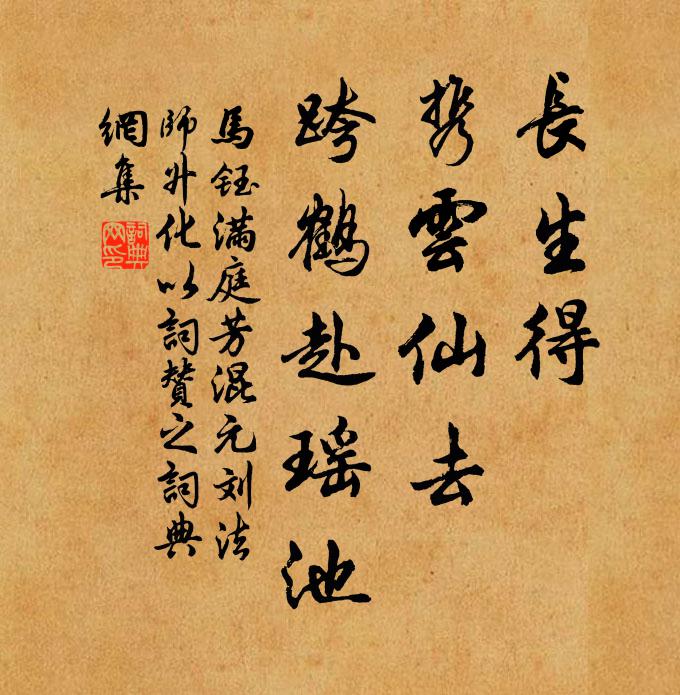 長生得
携雲仙去
跨鶴赴瑶池
馬鈺满庭芳混元刘法
師升化以詞贊之詞典
網集
詞典
网印